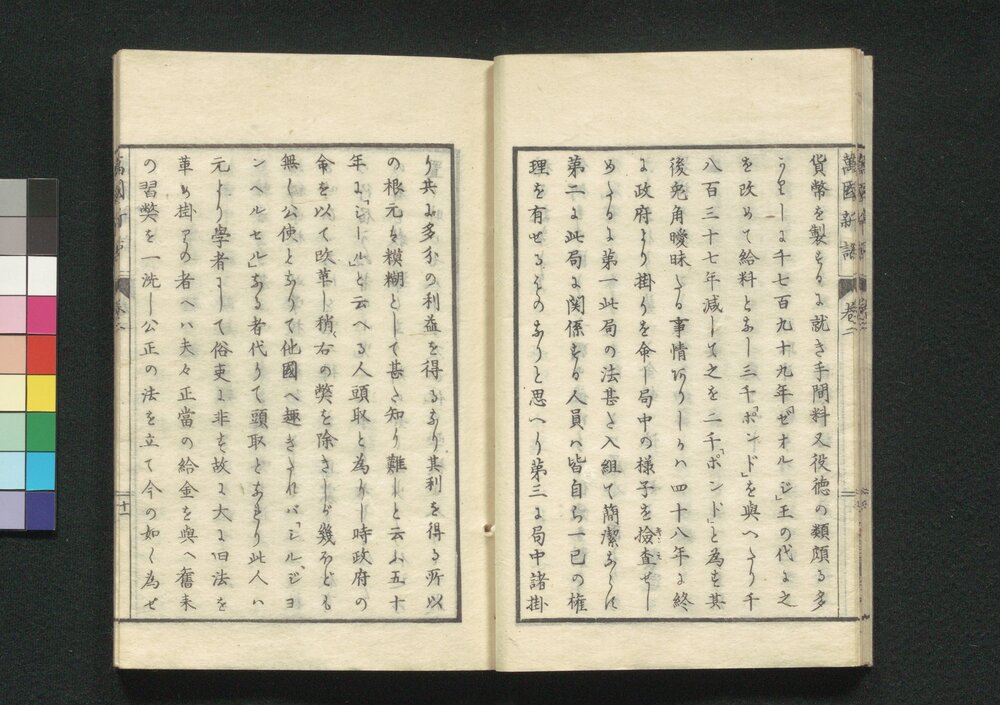 萬國新語
卷二
貨幣を製するに就き手間料又役徳の類頗る多
かりしに千七百九十九年「ゼオルジ」王の代に之
を改めて給料となし三千「ポンド」を與へたり千
八百三十七年減じて之を二千「ポンド」と為す其
後兎角曖昧たる事情ありしかハ四十八年に終
に政府より掛りを命し局中の様子を撿査せし
めたるに第一此局の法甚た入組て簡潔ならす
第二に此局に関係する人員ハ皆自ら一已の權
理を有せるものなりと思へり第三に局中諸掛
り共に多分の利益を得るなり其利を得る所以
の根元も糢糊として甚た知り難しと云ふ五十
年に「シール」と云へる人頭取と為りし時政府の
命を以て改革し稍右の獘を除きしが幾ほども
無し公使となりて他國へ趣きたれバ「シル、ジョ
ンヘルセル」なる者代りて頭取となれり此人ハ
元より學者にして俗吏に非す故に大に旧法を
革め掛りの者へハ夫々正當の給金を與へ舊来
の習獘を一洗し公正の法を立て今の如く為せ
十一